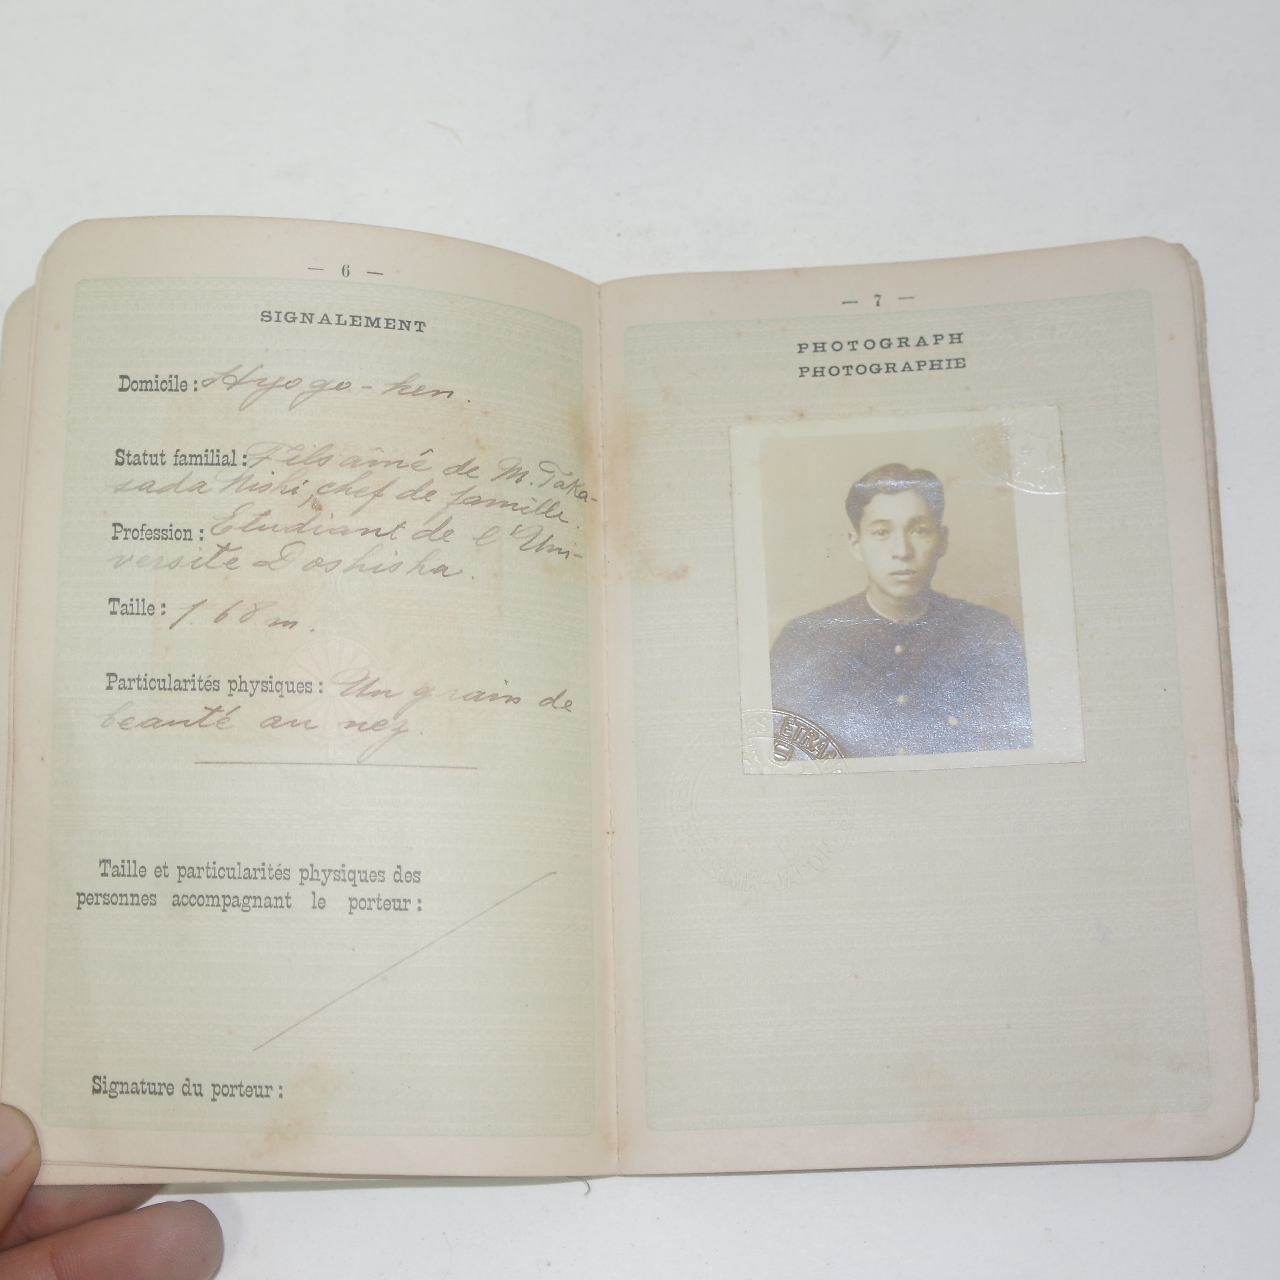 — 6 —
SIGNALEMENT
Domicile : Hyogo-ken.
Statut familial : Fils aîné de M. Taka-
sada Nishi, chef de famille.
Profession : Etudiant de l'Uni-
versite Doshisha.
Taille : 1.68 m.
Particularités physiques : Un grain de
beauté au nez.
Taille et particularités physiques des
personnes accompagnant le porteur :
Signature du porteur :
— 7 —
PHOTOGRAPH
PHOTOGRAPHIE